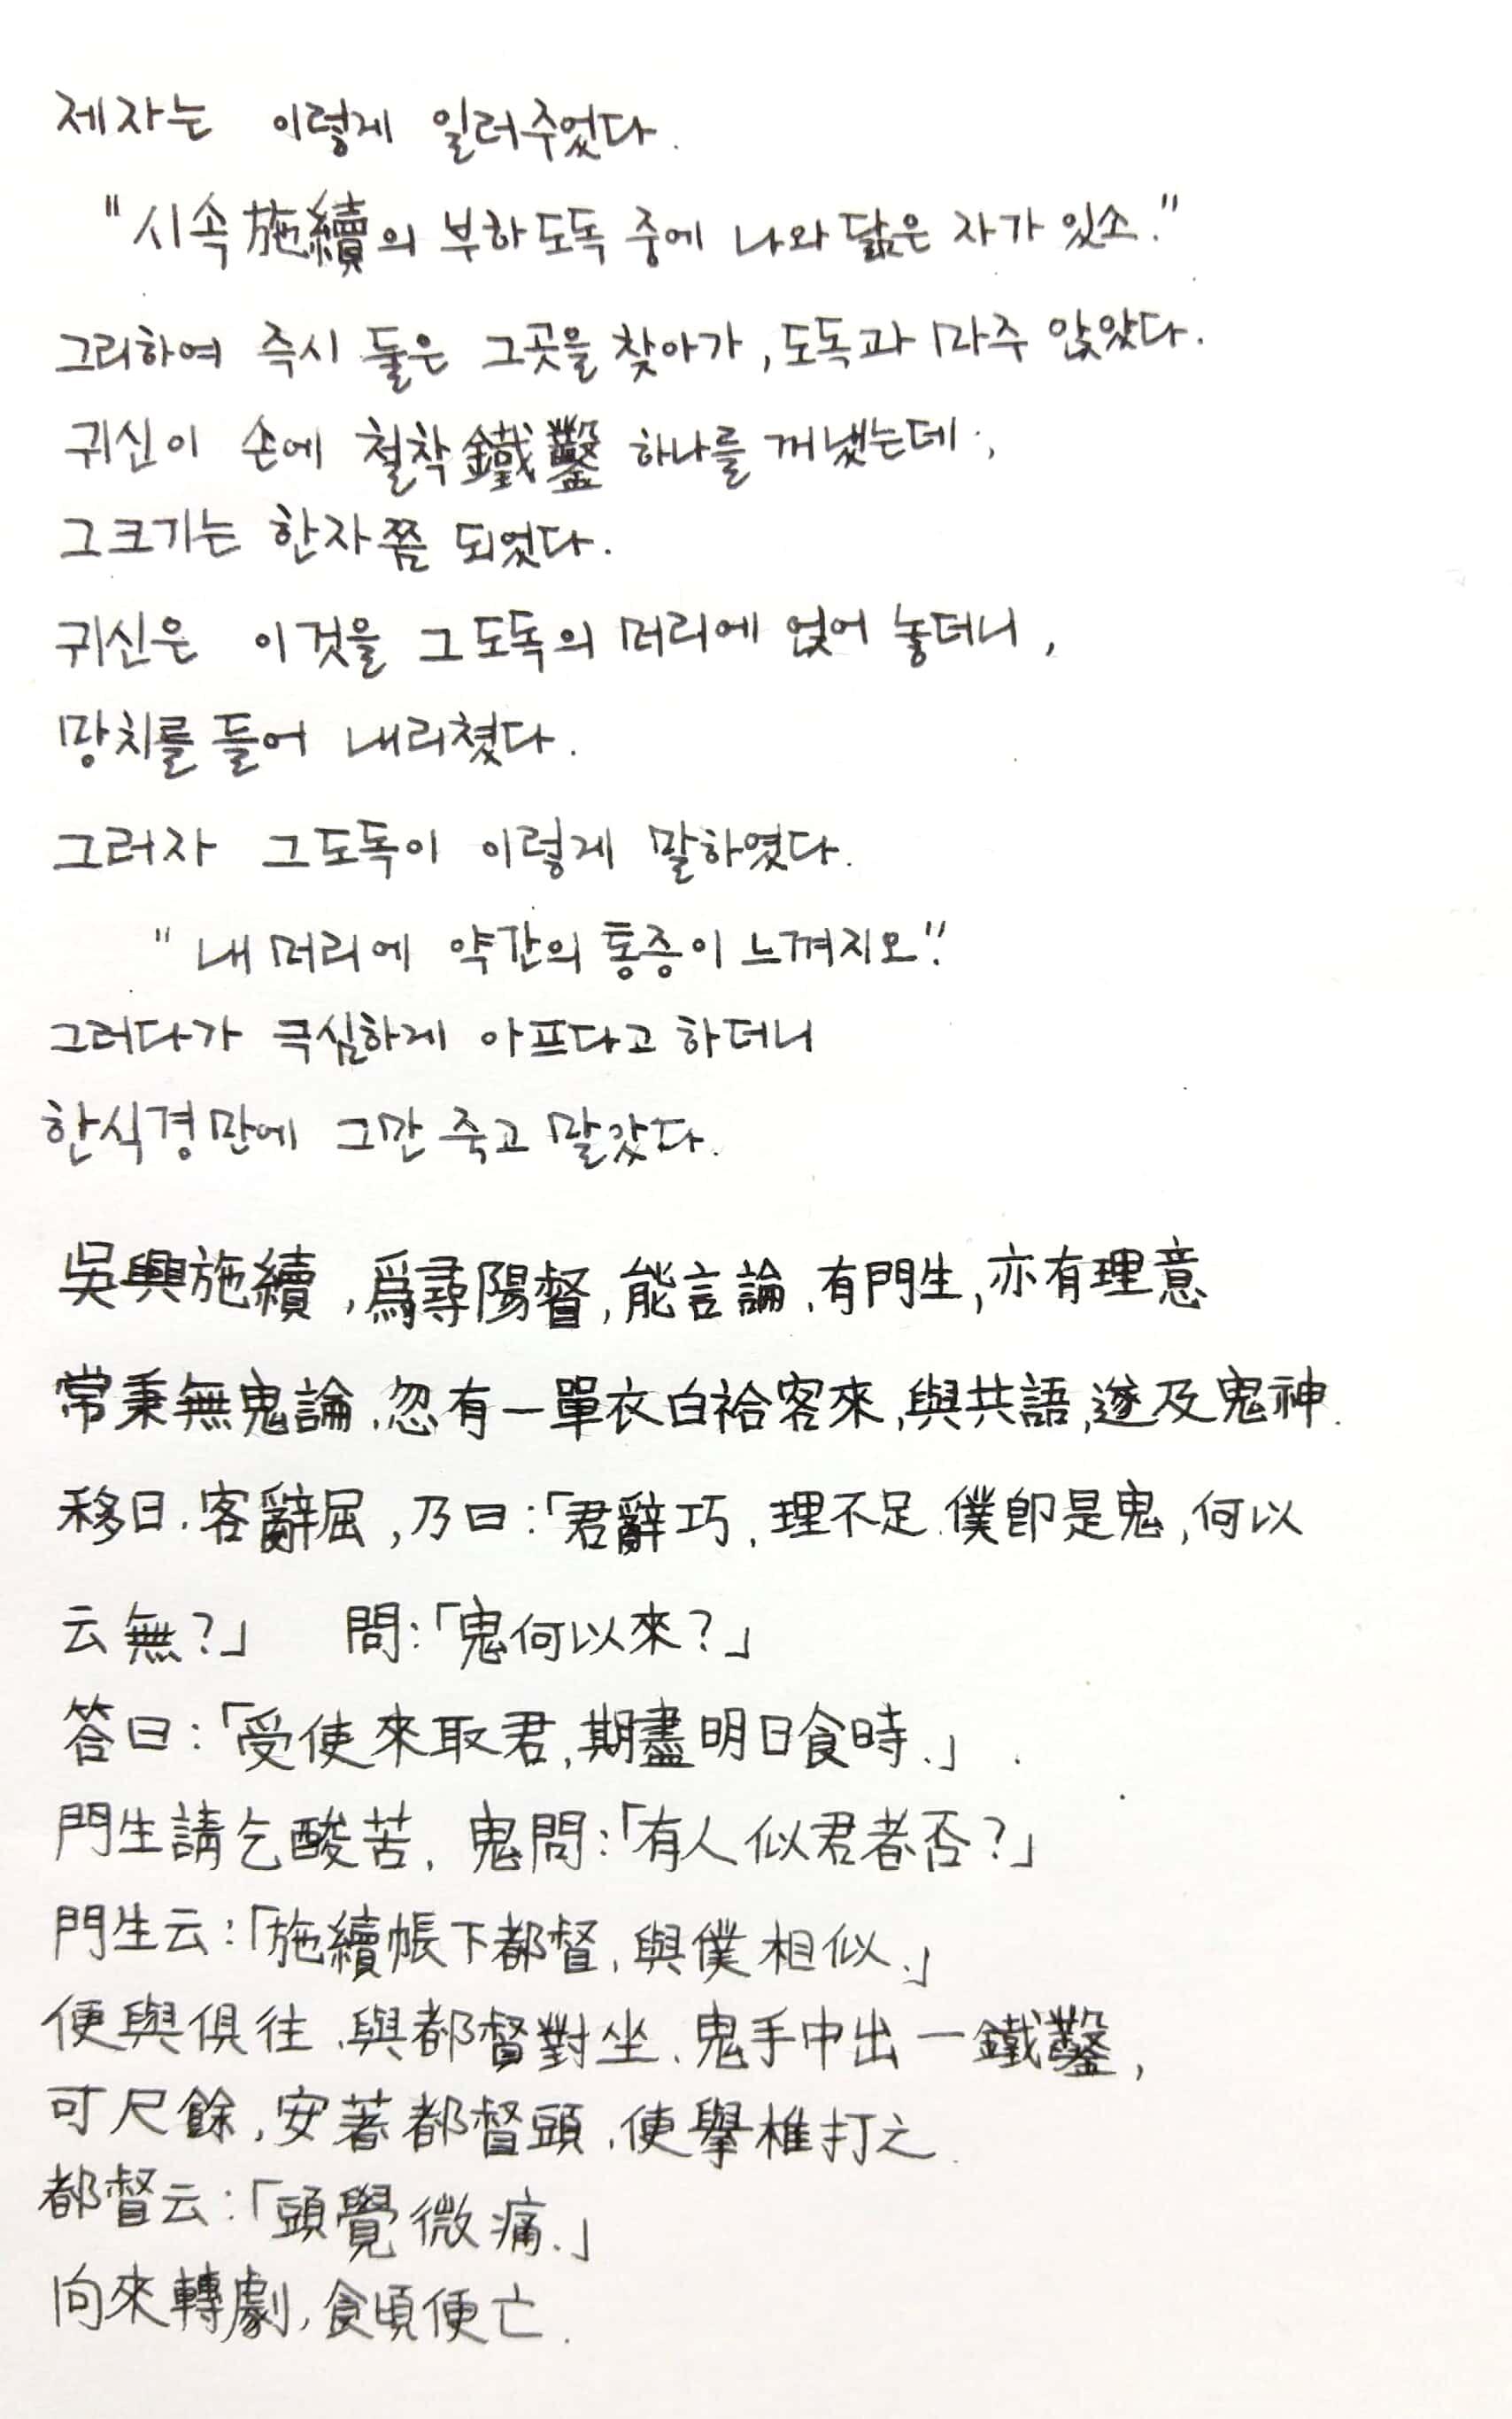 제자는 이렇게 일러주었다.
"시속施續의 부하 도독 중에 나와 닮은 자가 있소."
그리하여 즉시 둘은 그곳을 찾아가, 도독과 마주 앉았다.
귀신이 손에 철착鐵鑿 하나를 꺼냈는데,
그 크기는 한자쯤 되었다.
귀신은 이것을 그 도독의 머리에 얹어 놓더니,
망치를 들어 내리쳤다.
그러자 그 도독이 이렇게 말하였다.
"내 머리에 약간의 통증이 느껴지오."
그러다가 극심하게 아프다고 하더니
한식경 만에 그만 죽고 말았다.
吳興施續, 爲尋陽督, 能言論, 有門生, 亦有理意
常秉無鬼論, 忽有一單衣白袷客來, 與共語, 遂及鬼神.
移日, 客辭屈, 乃曰:「君辭巧, 理不足. 僕卽是鬼, 何以
云無?」 問:「鬼何以來?」
答曰:「受使來取君, 期盡明日食時.」
門生請乞酸苦, 鬼問:「有人似君者否?」
門生云:「施續帳下都督, 與僕相似.」
便與俱往, 與都督對坐, 鬼手中出一鐵鑿,
可尺餘, 安著都督頭, 便擧椎打之.
都督云:「頭覺微痛.」
向來轉劇, 食頃便亡.